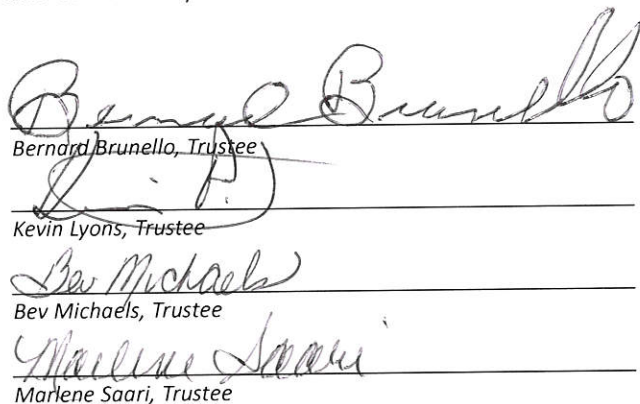 Bernard Brunello
Bernard Brunello, Trustee
Kevin Lyons, Trustee
Bev Michaels
Bev Michaels, Trustee
Marlene Saari
Marlene Saari, Trustee